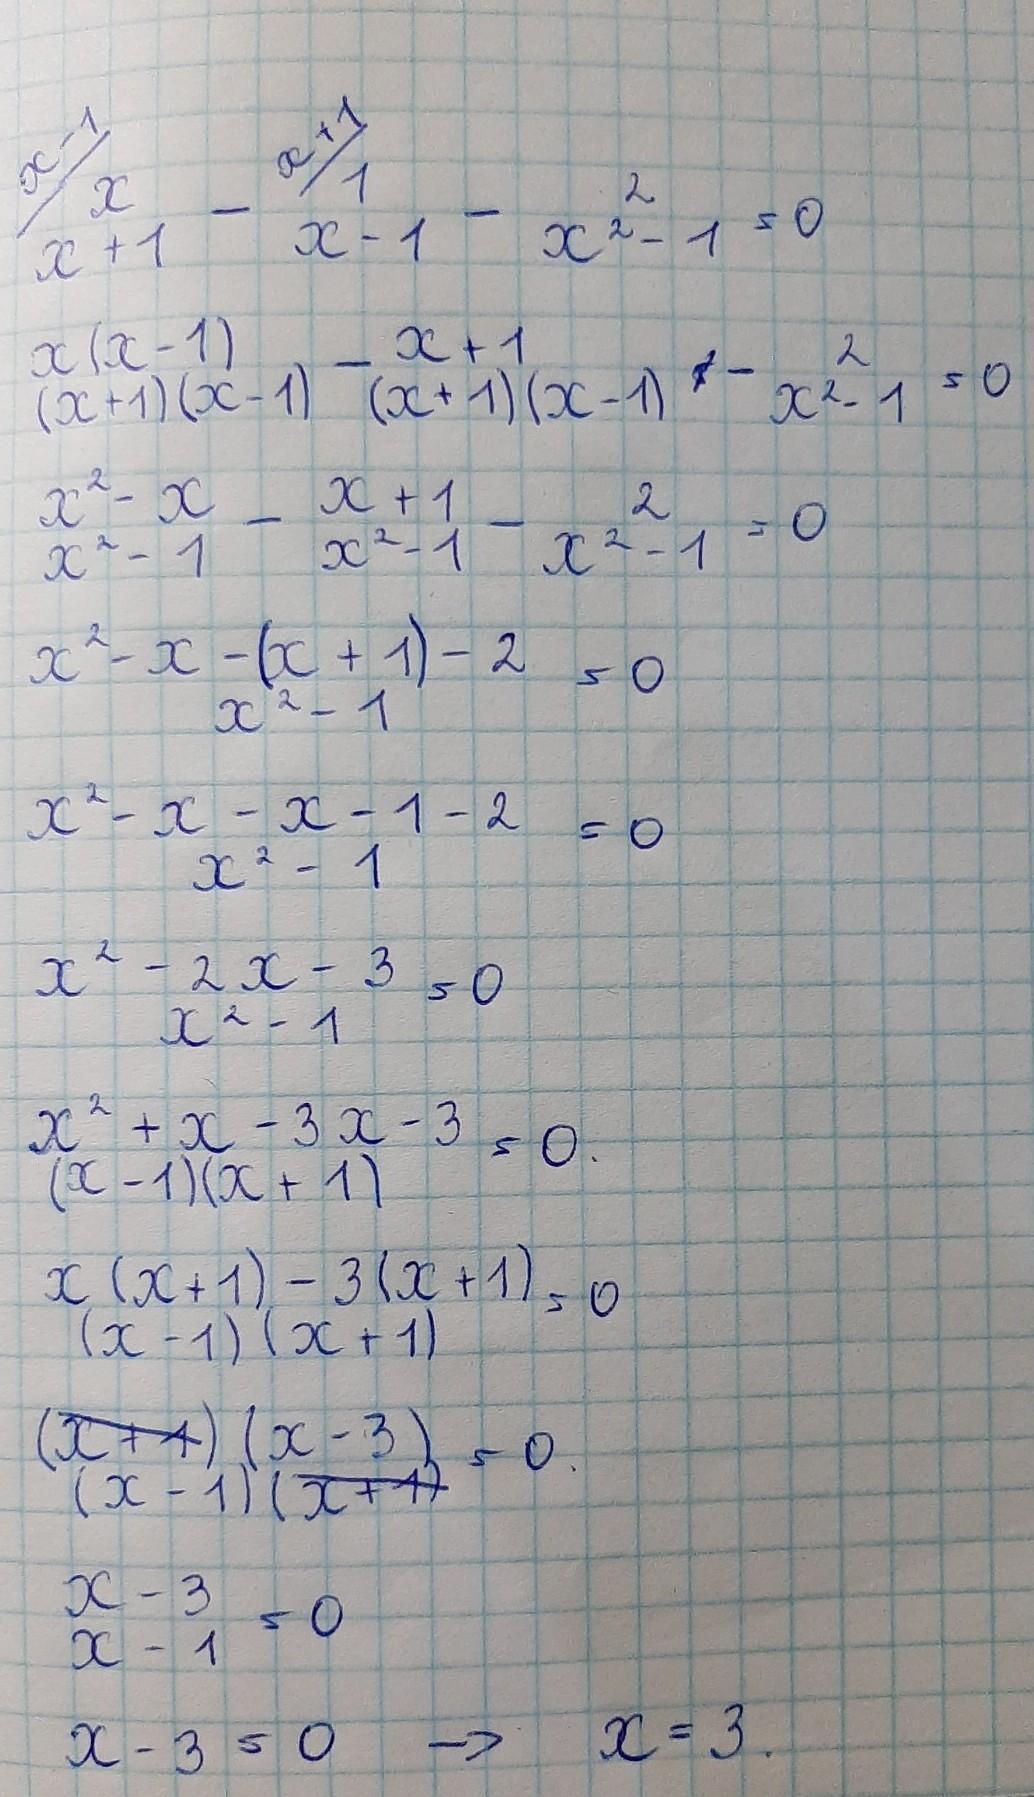 x-1/ x/(x+1) - x+1/ 1/(x-1) - 2/(x²-1) = 0
x(x-1)/((x+1)(x-1)) - (x+1)/((x+1)(x-1)) - 2/(x²-1) = 0
(x²-x)/(x²-1) - (x+1)/(x²-1) - 2/(x²-1) = 0
(x²-x-(x+1)-2)/(x²-1) = 0
(x²-x-x-1-2)/(x²-1) = 0
(x²-2x-3)/(x²-1) = 0
(x²+x-3x-3)/((x-1)(x+1)) = 0.
(x(x+1)-3(x+1))/((x-1)(x+1)) = 0
(x+1)(x-3)/((x-1)(x+1)) = 0.
(x-3)/(x-1) = 0
x-3=0 -> x=3.